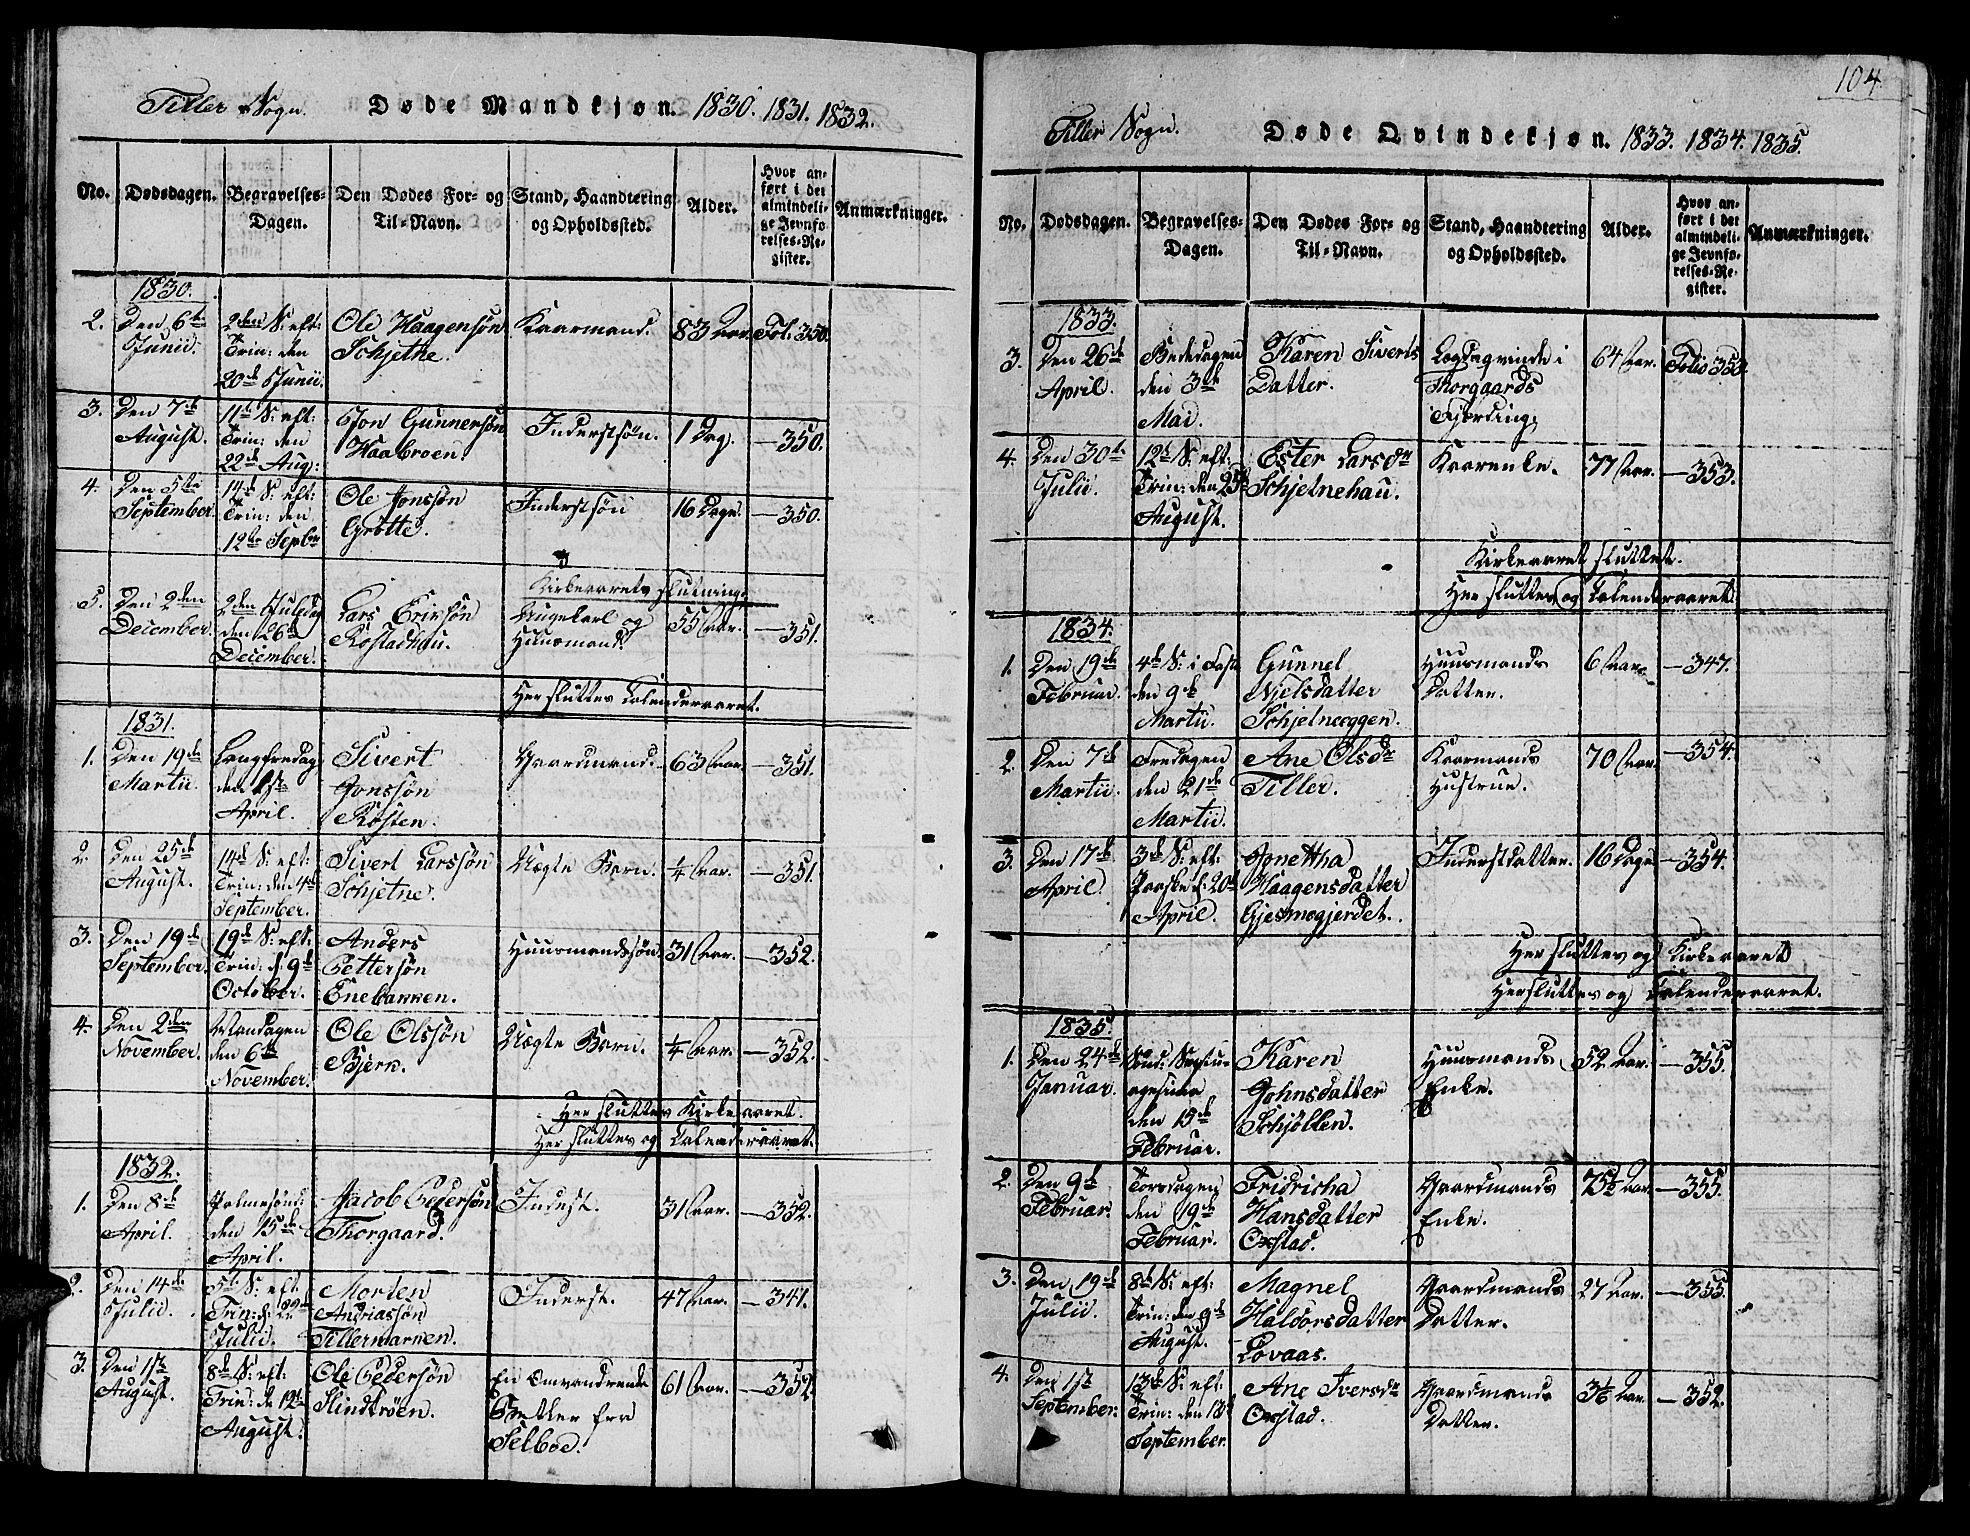 Tiller Sogn. Døde Mandkjøn. 1830. 1831. 1832.
No. Dødsdagen. Begravelses-Dagen. Den Dødes For- og Til-Navn. Stand, Haandtering og Opholdssted. Alder. Hvor anført i det almindelige Jevnførelses-Register. Anmærkninger.
1830.
2. Den 6te Junii. 2den S: eft: Trin: den 20de Junii. Ole Haagensøn Schjetne. Kaarmand. 83 Aar. Fol: 350.
3. Den 7de August. 11te S: eft: Trin: den 22de Aug: Jon Gunnersøn Haabroen. Inderstsøn. 1 Dag. —350.
4. Den 5te September. 14de S: eft: Trin: den 12te Septbr Ole Jonssøn Grøtte. Inderstsøn 16 Dage. —350.
Kirkeaarets slutning.
5. Den 2den December. 2den Juledag den 26de December. Lars Eriksøn Rostadhau. Ungekarl og Huusmand. 55 Aar. —351.
Her sluttes Calenderaaret.
1831.
1. Den 19de Martii. Langfredag den 1ste April. Sivert Jonssøn Rosten. Gaardmand. 63 Aar. —351.
2. Den 25de August. 14de S: eft: Trin: den 4de September. Sivert Larssøn Schjetne. Uægte Barn. ¼ Aar. —351.
3. Den 19de September. 19de S: eft: Trin: d: 9de October. Anders Pettersøn Enebakken. Huusmandssøn. 31 Aar. —352.
4. Den 2den November. Mandagen den 6te November. Ole Olssøn Bjerk. Uægte Barn. ¼ Aar. —352.
Her sluttes Kirkeaaret.
Her sluttes og Calenderaaret.
1832.
1. Den 8de April. Palmesønd: den 15de April. Jacob Pedersøn Thorgaard. Inderst. 31 Aar. —352.
2. Den 14de Julii. 5te S: eft Trin: d: 22de Julii. Morten Andriassøn Tillermarken. Inderst. 47 Aar. —347.
3. Den 1ste August. 8de S: eft. Trin: d: 12te August. Ole Pedersøn Slindtrøen. En Omvandrende Betler fra Selboe. 61 Aar. —352.
104
Tiller Sogn. Døde Qvindekjøn. 1833. 1834. 1835.
No. Dødsdagen. Begravelses-Dagen. Den Dødes For- og Til-Navn. Stand, Haandtering og Opholdssted. Alder. Hvor anført i det almindelige Jevnførelses-Register. Anmærkninger.
1833.
3. Den 26de April. Bededagen den 3de Mai. Karen Siverts Datter. Lægdsqvinde i Thorgaards Fjerding. 64 Aar. Folio 353.
4. Den 30te Julii. 12te S: eft: Trin: den 25de August. Ester Larsdr Schjetnehau. Kaarenke. 77 Aar. —353.
Kirkeaaret sluttet.
Her sluttes og Calenderaaret.
1834.
1. Den 19de Februar. 4de S: i Faste den 9de Martii. Gunnel Njelsdatter Schjetneeggen. Huusmands Datter. 6 Aar. —347.
2. Den 7de Martii. Fredagen den 21de Martii. Ane Olsdr Tiller. Kaarmands Hustrue. 70 Aar. —354.
3. Den 17de April. 3de S: eft: Paaske d: 20de April. Jonettha Haagensdatter Gjesmogjerdet. Inderstdatter. 16 Dage —354.
Her sluttes og Kirkeaaret
Her sluttes og Calenderaaret.
1835.
1. Den 24de Januar. Sønd: Septuagesima den 15de Februar. Karen Johnsdatter Schjølten. Huusmands Enke. 52 Aar. —355.
2. Den 9de Februar. Torsdagen den 19de Februar. Fridricha Hansdatter Oxstad. Gaardmands Enke. 75½ Aar. —355.
3. Den 19de Julii. 8de S: eft: Trin: den 9de August. Magnel Haldorsdatter Lovaas. Gaardmands Datter. 27 Aar. —355.
4. Den 1ste September. 13de S: eft: Trin: den 13de September. Ane Iversdr Oxstad. Gaardmands Datter. Aar. —352.